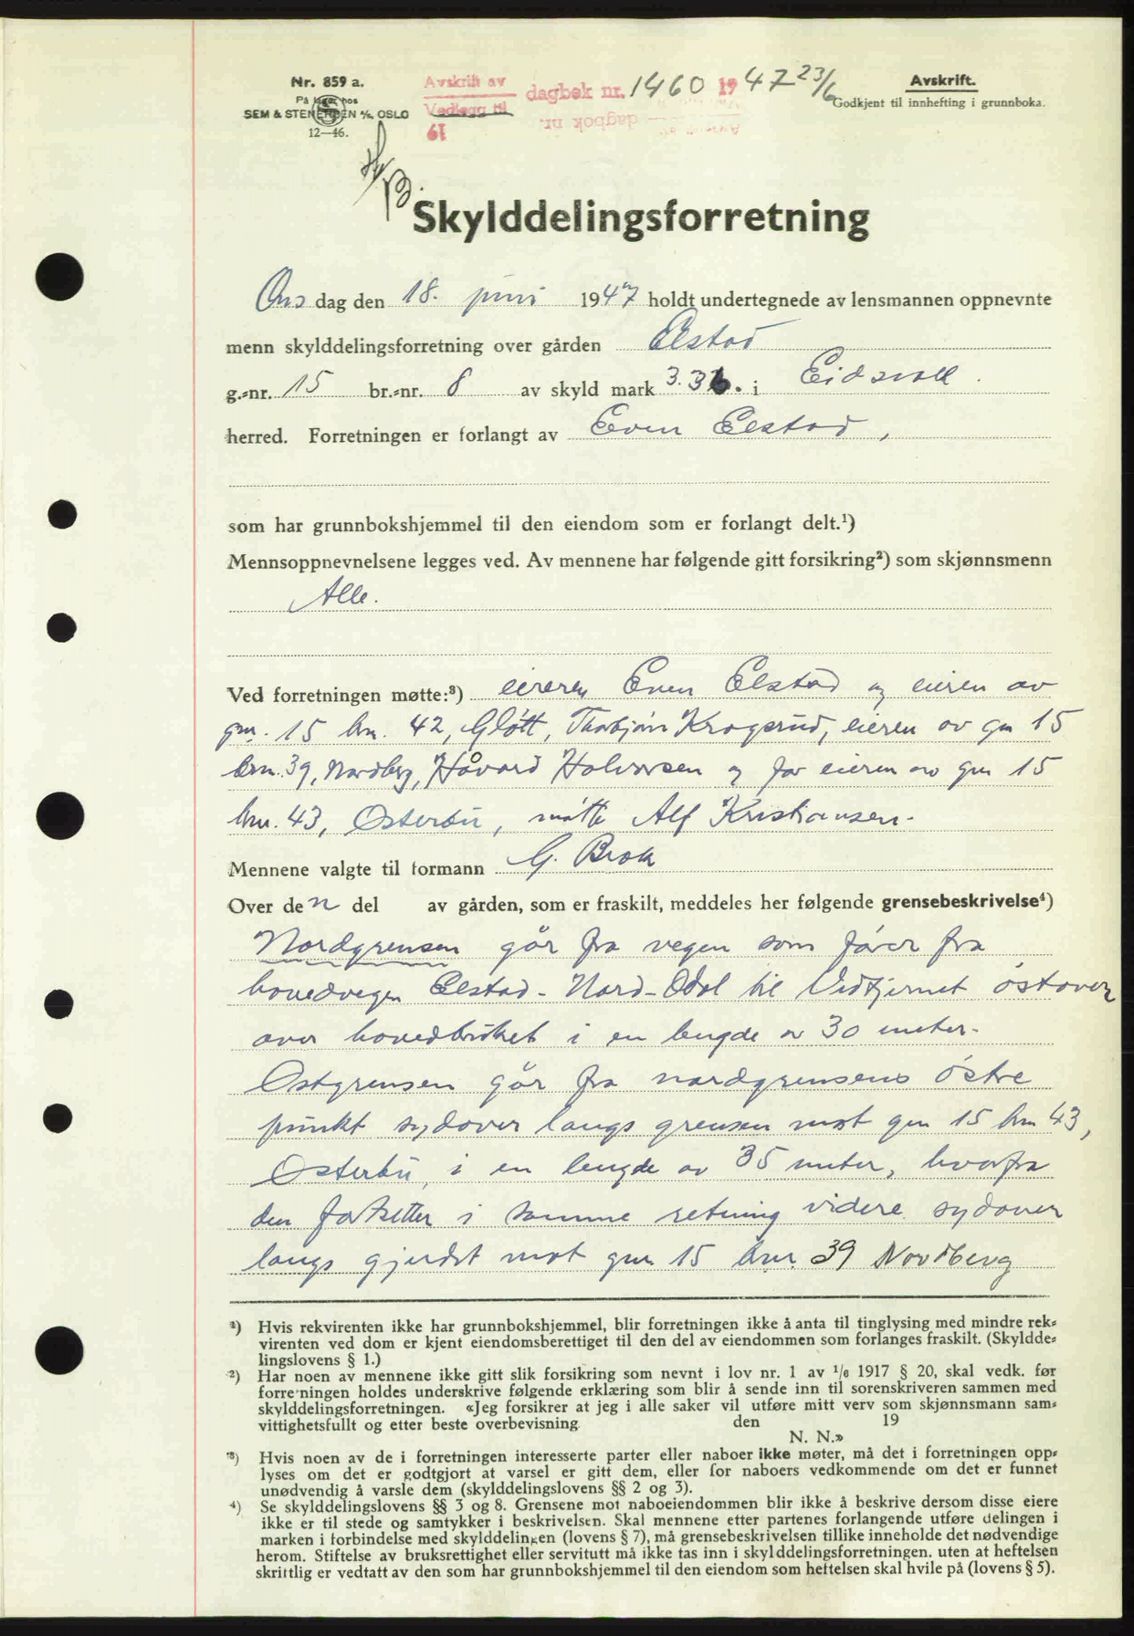 Nr. 859 a.
På lager hos
SEM & STENERSEN A/S, OSLO
12—46.
Avskrift av
Vedlegg til
19
dagbok nr. 1460 1947 23/6
Avskrift.
Godkjent til innhefting i grunnboka.
Skylddelingsforretning
Onsdag den 18. juni 1947 holdt undertegnede av lensmannen oppnevnte
menn skylddelingsforretning over gården Elstad
g.-nr. 15 br.-nr. 8 av skyld mark 3.36. i Eidsvoll.
herred. Forretningen er forlangt av Even Elstad,
som har grunnbokshjemmel til den eiendom som er forlangt delt.¹)
Mennsoppnevnelsene legges ved. Av mennene har følgende gitt forsikring²) som skjønnsmenn
Alle.
Ved forretningen møtte:³) eieren Even Elstad og eieren av
gnr. 15 bnr. 42, Gløtt, Thorbjørn Krogsrud, eieren av gnr 15
bnr. 39, Nordberg, Håvard Halvorsen og for eieren av gnr 15
bnr. 43, Østerbu, møtte Alf Kristiansen.
Mennene valgte til formann G. Brok
Over den del av gården, som er fraskilt, meddeles her følgende grensebeskrivelse⁴)
Nordgrensen går fra vegen som fører fra
hovedvegen Elstad - Nord-Odal til Vidtjernet østover
over hovedbruket i en lengde av 30 meter.
Østgrensen går fra nordgrensens østre
punkt sydover langs grensen mot gnr 15 bnr 43,
Østerbu, i en lengde av 35 meter, hvorfra
den fortsetter i samme retning videre sydover
langs gjerdet mot gnr. 15 bnr. 39 Nordberg
¹) Hvis rekvirenten ikke har grunnbokshjemmel, blir forretningen ikke å anta til tinglysing med mindre rek-
virenten ved dom er kjent eiendomsberettiget til den del av eiendommen som forlanges fraskilt. (Skyldde-
lingslovens § 1.)
²) Har noen av mennene ikke gitt slik forsikring som nevnt i lov nr. 1 av 1/6 1917 § 20, skal vedk. før
forretningen holdes underskrive følgende erklæring som blir å sende inn til sorenskriveren sammen med
skylddelingsforretningen. «Jeg forsikrer at jeg i alle saker vil utføre mitt verv som skjønnsmann sam-
vittighetsfullt og etter beste overbevisning den 19
N. N.»
³) Hvis noen av de i forretningen interesserte parter eller naboer ikke møter, må det i forretningen opp-
lyses om det er godtgjort at varsel er gitt dem, eller for naboers vedkommende om det er funnet
unødvendig å varsle dem (skylddelingslovens §§ 2 og 3).
⁴) Se skylddelingslovens §§ 3 og 8. Grensene mot naboeiendommen blir ikke å beskrive dersom disse eiere
ikke er til stede og samtykker i beskrivelsen. Skal mennene etter partenes forlangende utføre delingen i
marken i forbindelse med skylddelingen (lovens § 7), må grensebeskrivelsen tillike inneholde det nødvendige
herom. Stiftelse av bruksrettighet eller servitutt må ikke tas inn i skylddelingsforretningen, uten at heftelsen
skriftlig er vedtatt av den som har grunnbokshjemmel til den eiendom som heftelsen skal hvile på (lovens § 5).